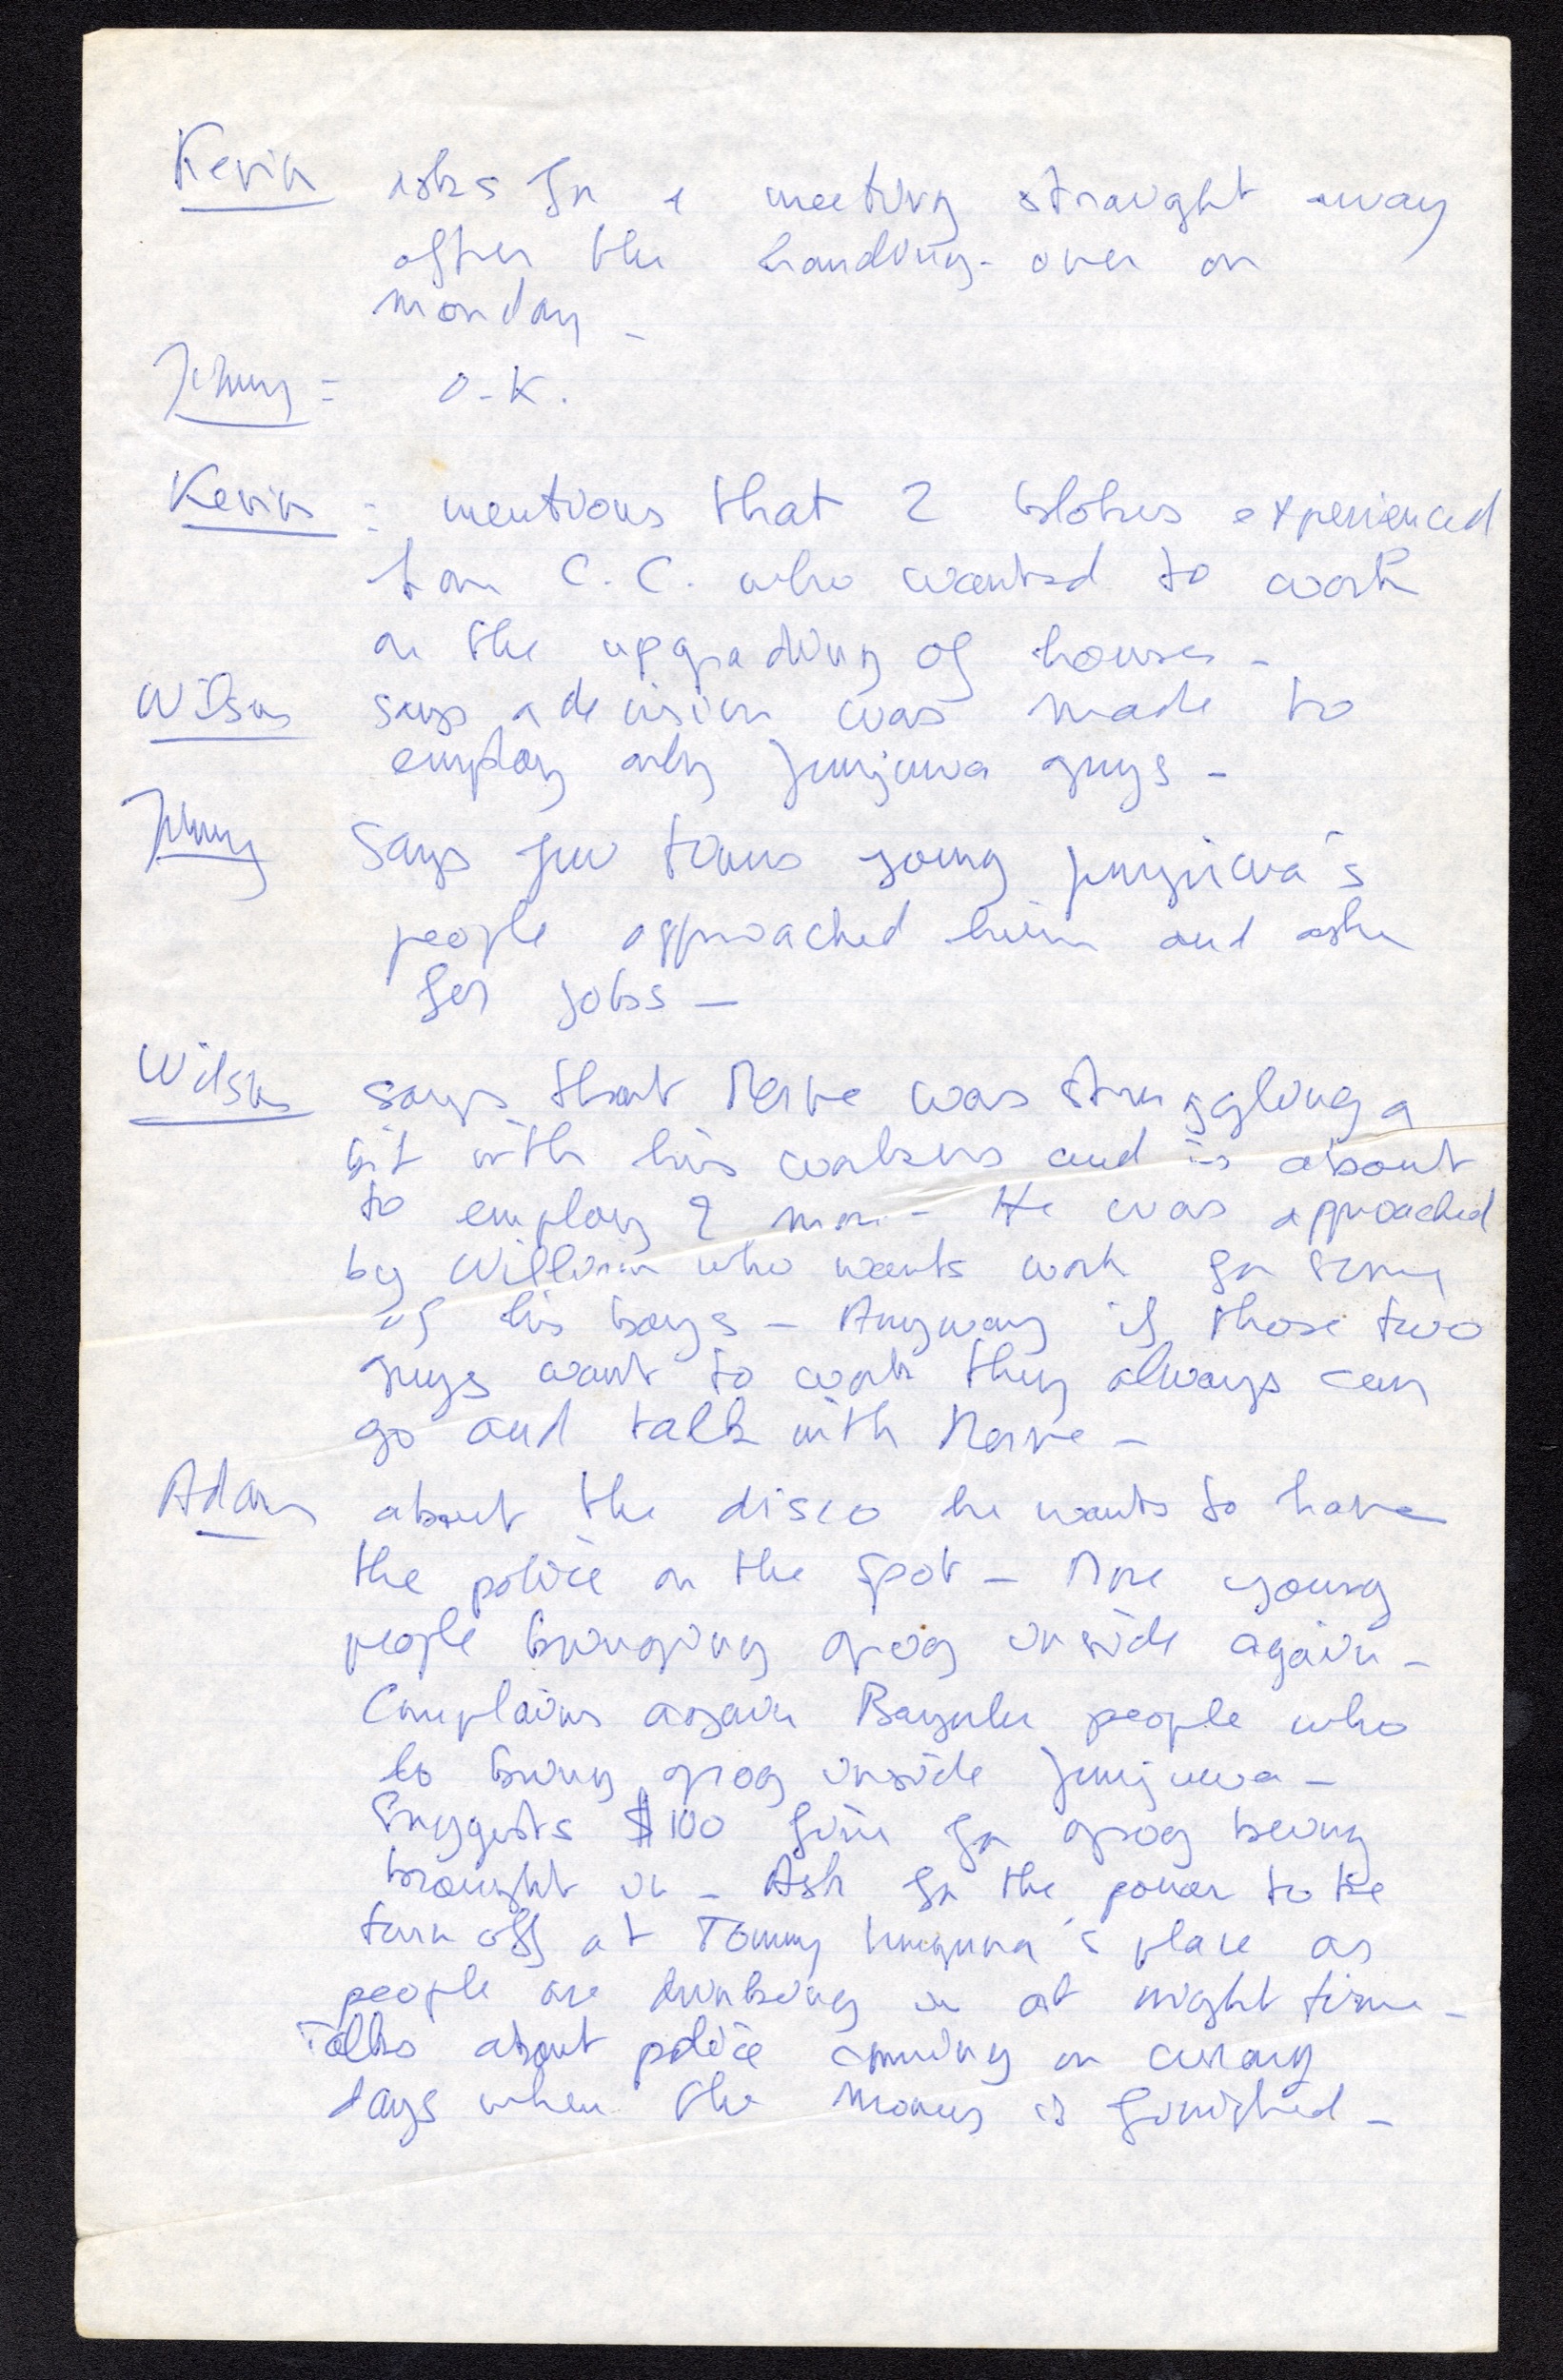 Kevin asks for a meeting straight away
after the handling-over on
monday -
Jimmy = O-K.
Kevin : mentions that 2 blokes experienced
from C.C. who wanted to work
on the upgrading of houses -
Wilson says a decision was made to
employ only Junjuwa guys -
Jimmy Says few times young junjuwa's
people approached him and ask
for jobs -
Wilson says that Merve was struggling a
bit with his workers and is about
to employ 2 more - He was approached
by William who wants work for some
of his boys - Anyway if those two
guys want to work they always can
go and talk with Merve -
Adam about the disco he wants to have
the police on the spot - More young
people bringing grog inside again -
Complains again Bayulu people who
to bring grog inside Junjuwa -
Suggests $100 fine for grog being
brought in - Ask for the power to be
turn off at Tommy place as
people are drinking in at night time -
Talks about police coming on
days when the money is finished -